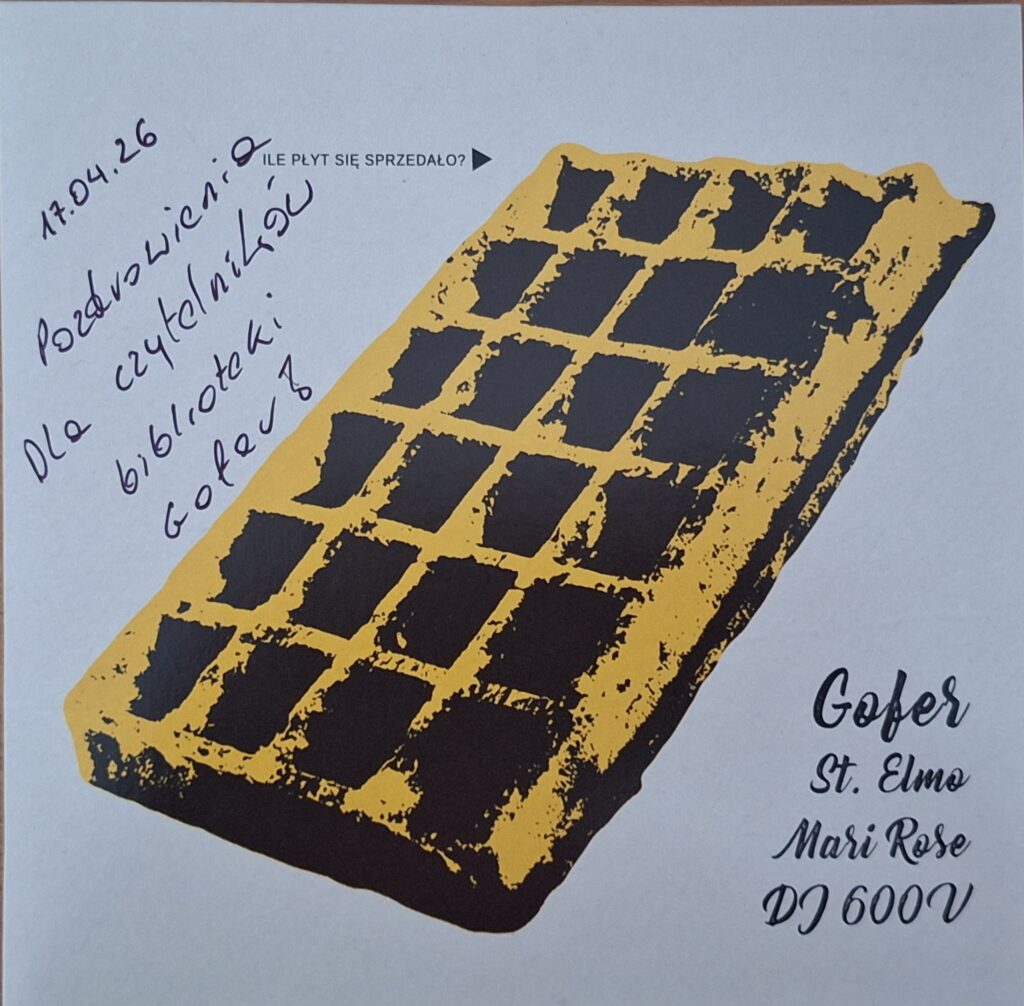 17.04.26
Pozdrowienia
Dla czytelników
biblioteki
Gofer
ILE PŁYT SIĘ SPRZEDAŁO?
Gofer
St. Elmo
Mari Rose
DJ 600V